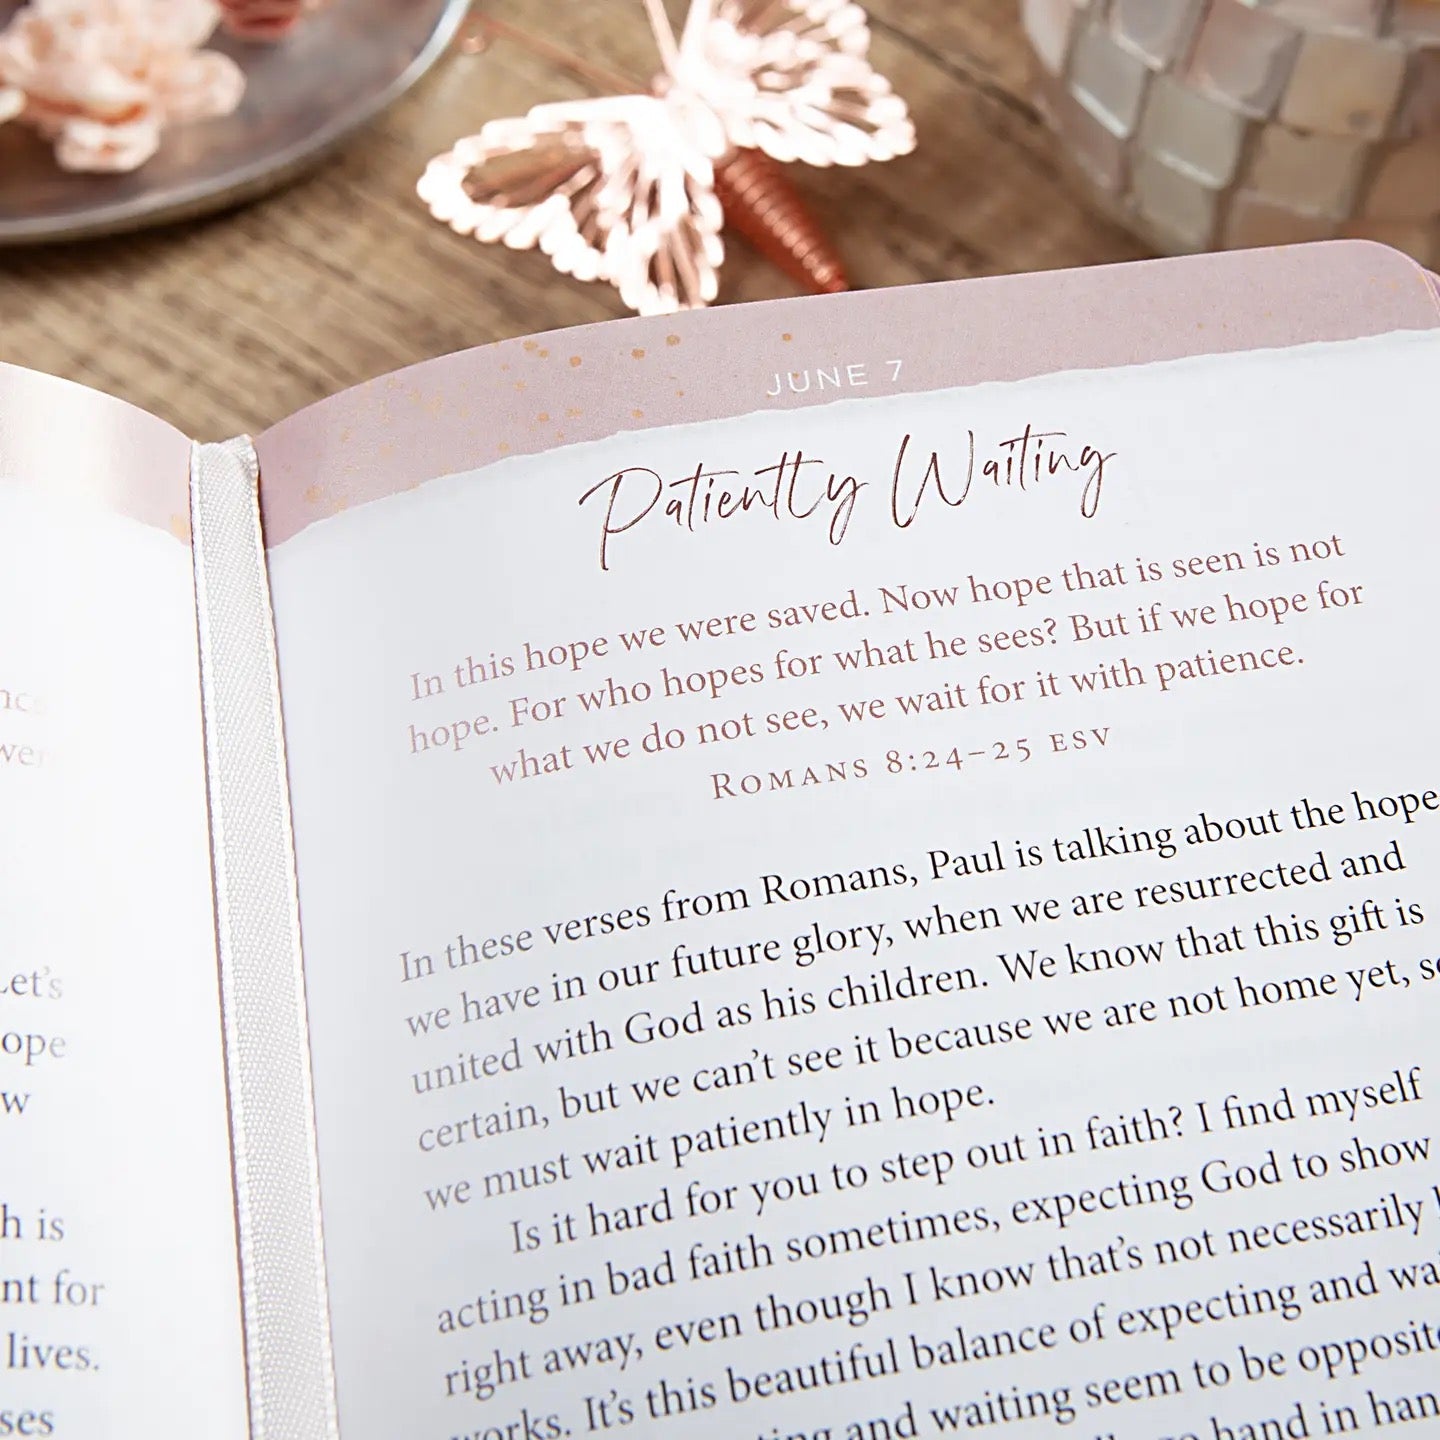 Let's
ope
w
h is
nt for
lives.
ses
JUNE 7
Patiently Waiting
In this hope we were saved. Now hope that is seen is not
hope. For who hopes for what he sees? But if we hope for
what we do not see, we wait for it with patience.
ROMANS 8:24–25 ESV
In these verses from Romans, Paul is talking about the hope
we have in our future glory, when we are resurrected and
united with God as his children. We know that this gift is
certain, but we can't see it because we are not home yet, so
we must wait patiently in hope.
Is it hard for you to step out in faith? I find myself
acting in bad faith sometimes, expecting God to show
right away, even though I know that's not necessarily
works. It's this beautiful balance of expecting and
and waiting seem to be
hand in